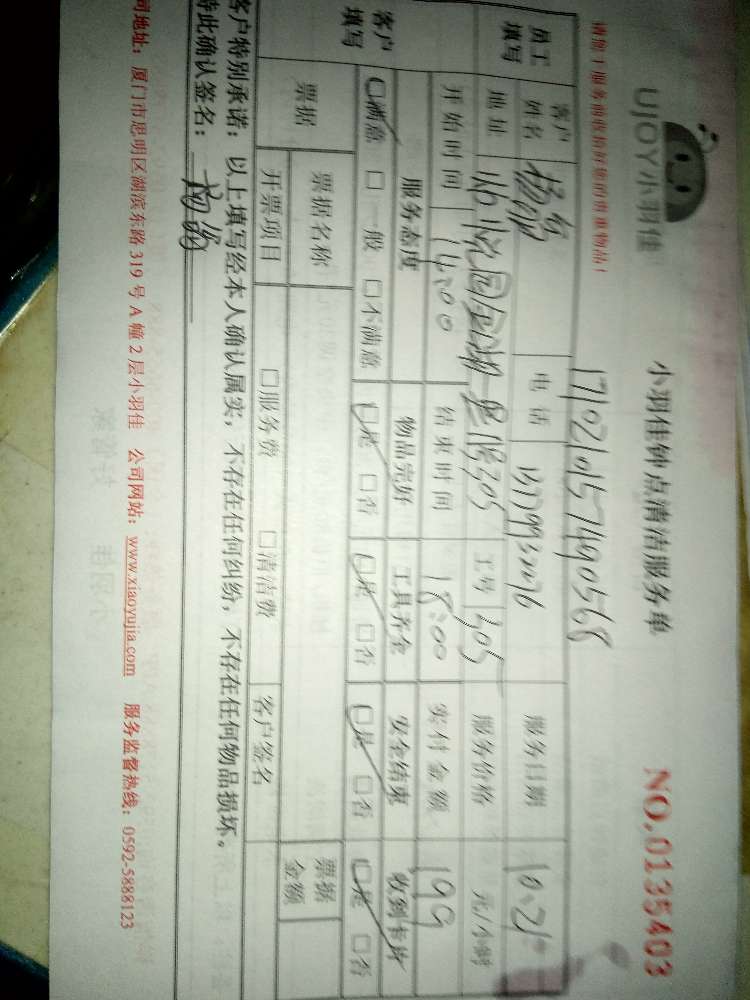 UJOY小羽佳
小羽佳钟点清洁服务单
NO.0135403
17102015490568
员工填写
客户姓名 电话 服务日期 10.21
地址 工号 服务价格 元/小时
开始时间 14:00 结束时间 18:00 实付金额 199
客户填写
服务态度 物品完好 工具齐全 安全结束 收到卡片
□满意 □一般 □不满意 □是 □否 □是 □否 □是 □否 □是 □否
票据 票据名称 票据金额
开票项目 □服务费 □清洁费 客户签名
客户特别承诺：以上填写经本人确认属实，不存在任何纠纷，不存在任何物品损坏。
特此确认签名：
司地址：厦门市思明区湖滨东路 319 号 A 幢 2 层小羽佳 公司网站：www.xiaoyujia.com 服务监督热线：0592-5888123